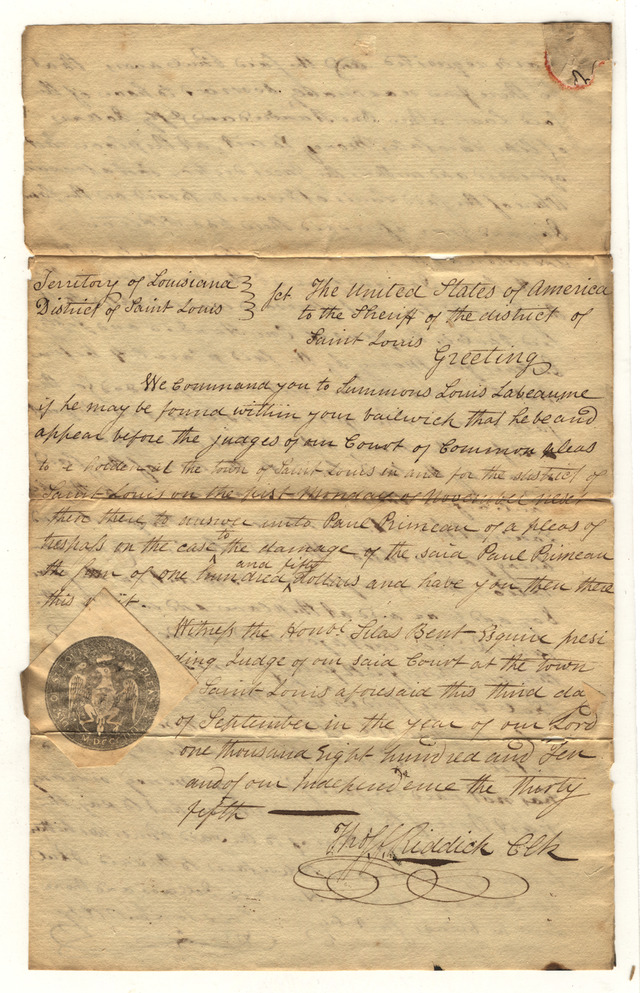 Territory of Louisiana
District of Saint Louis
Sct The United States of America
to the Sheriff of the district of
Saint Louis
Greeting
We Command you to Summons Louis Labeaume
if he may be found within your bailwick that he be and
appear before the judges of our Court of Common pleas
to be holden at the town of Saint Louis in and for the district of
Saint Louis on the first Monday of November next
then there to answer unto Paul Primeau of a pleas of
trespass on the case to the damage of the said Paul Primeau
the sum of one hundred and fifty dollars and have you then there
this writ
Witness the Honbl Silas Bent Esquire presi
ding Judge of our said Court at the town
Saint Louis aforesaid this third da
of September in the year of our Lord
one thousand Eight hundred and Ten
and of our Independence the thirty
fifth
Thos F. Riddick Clk